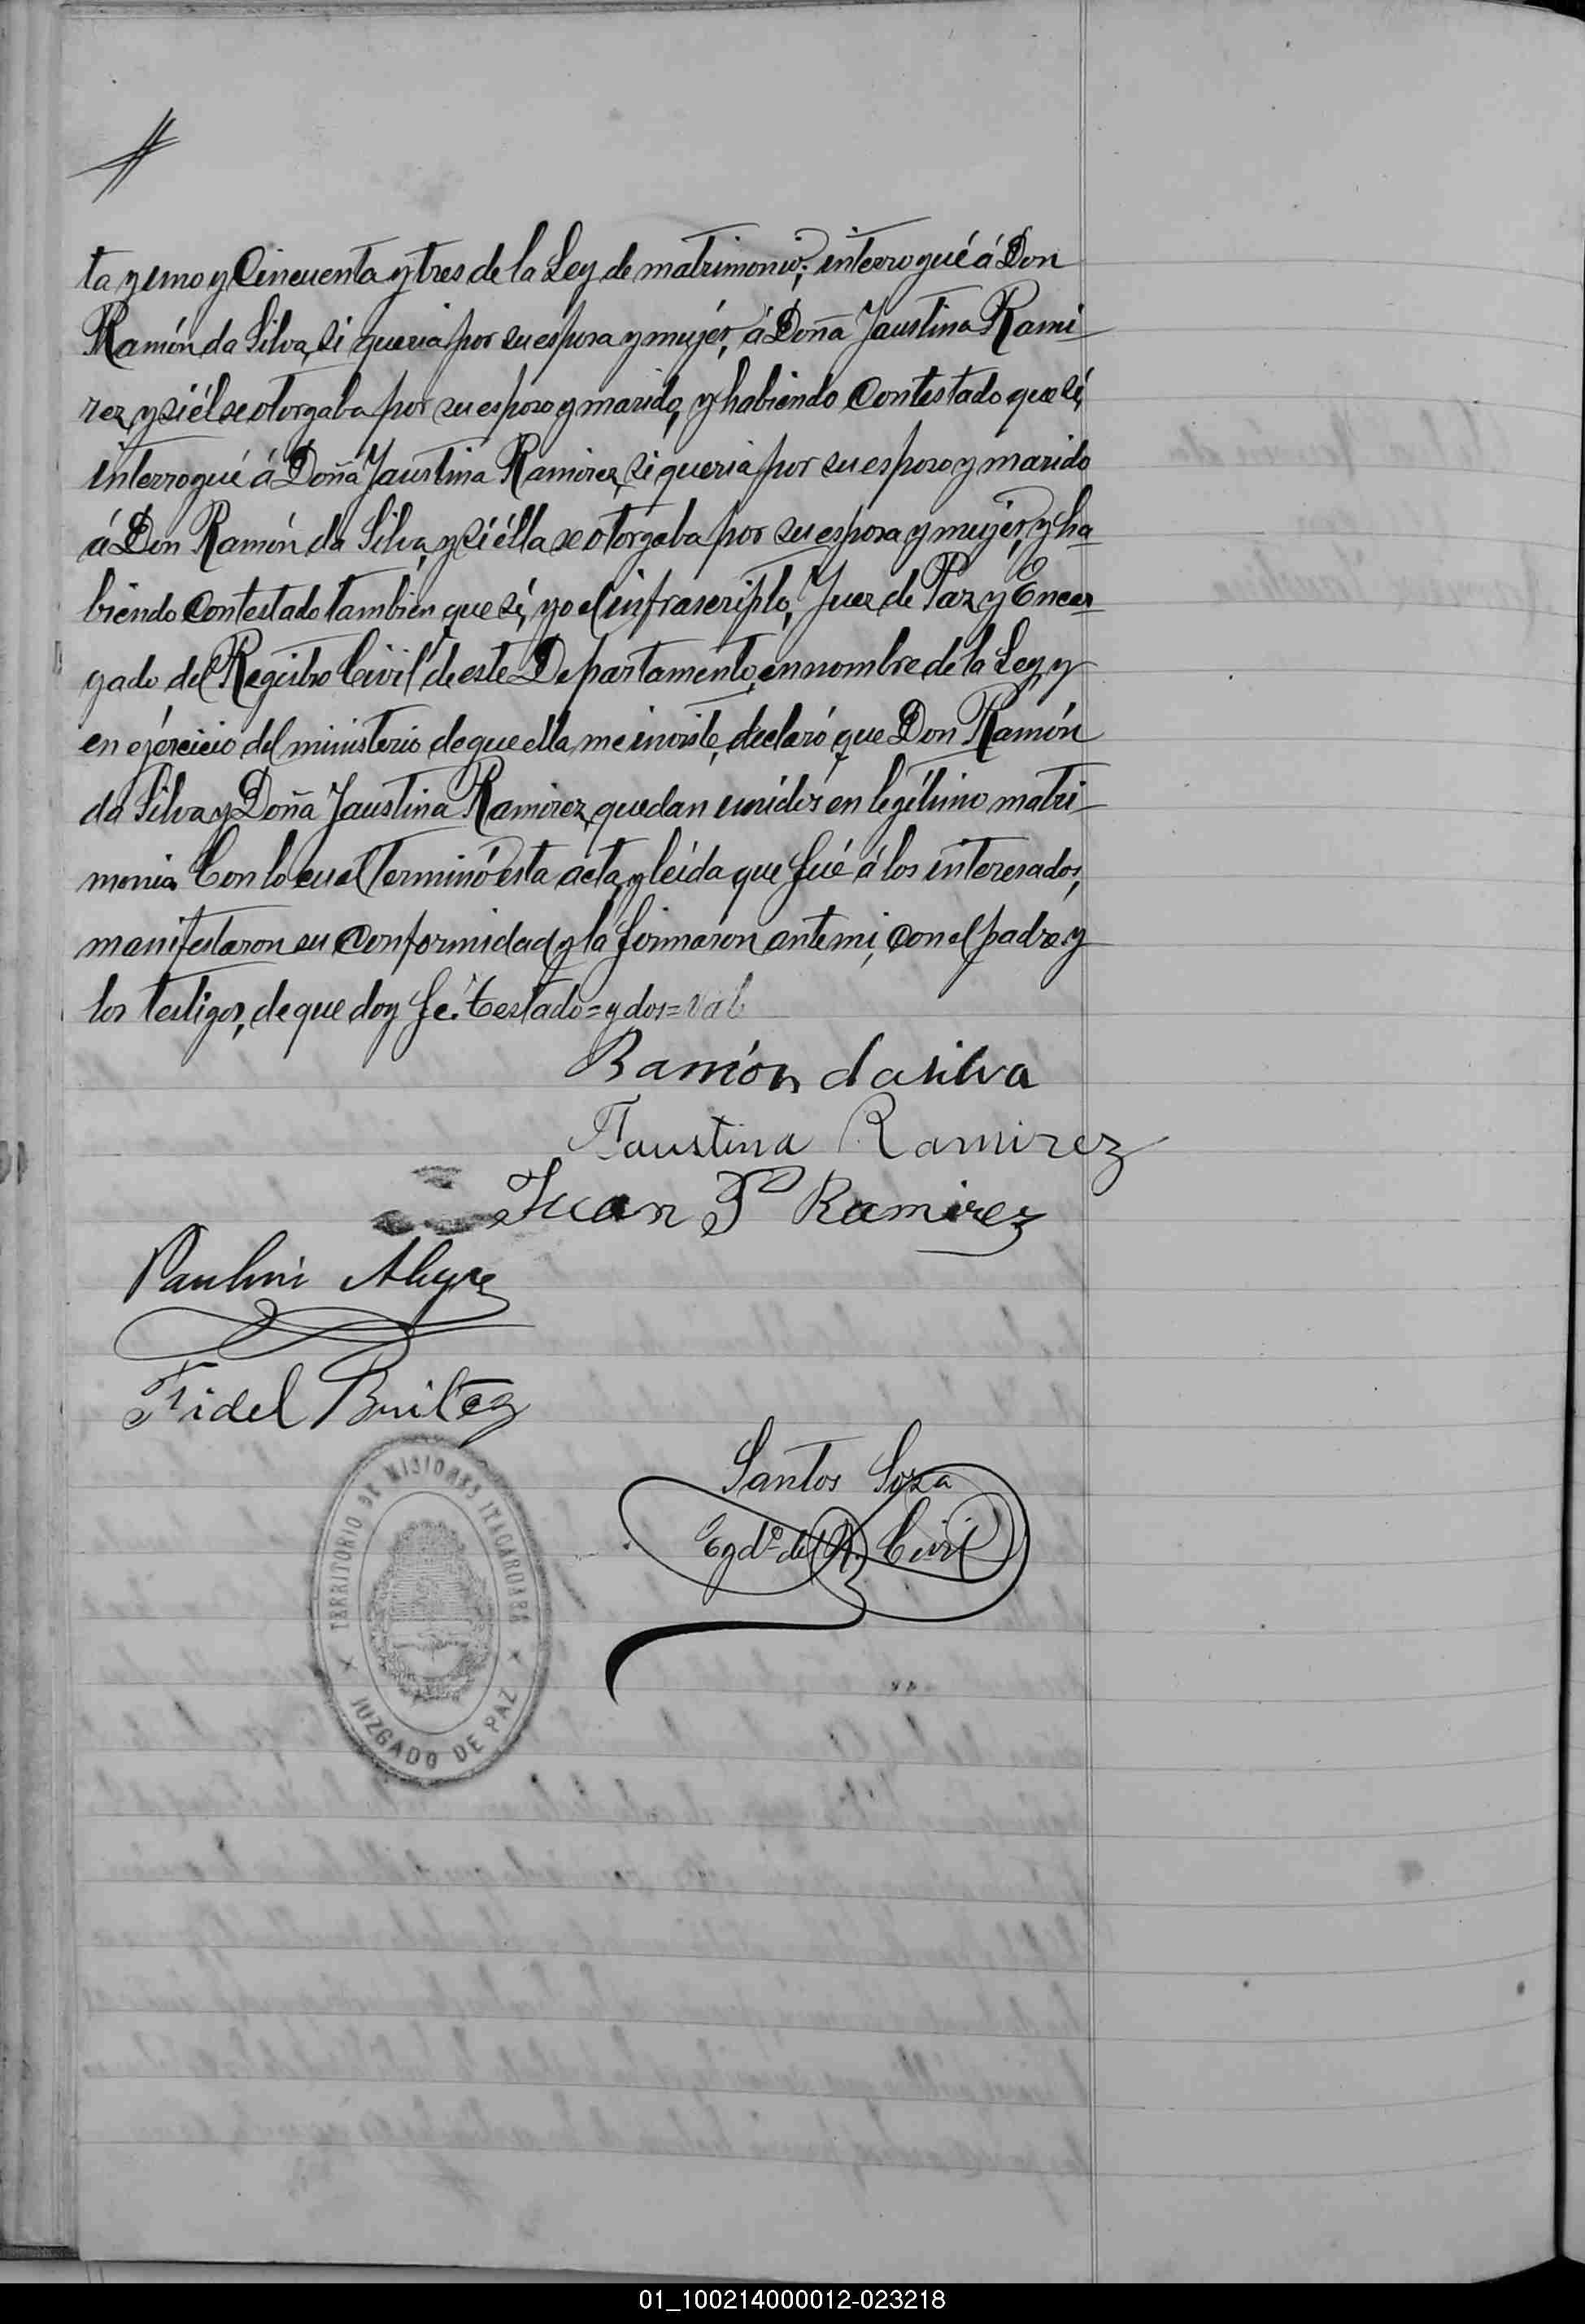 ta y uno y Cincuenta y tres de la Ley de matrimonio; interrogué á Don
Ramón da Silva, si queria por su esposa y mujér, á Doña Faustina Rami
rez, y si él se otorgaba por su esposo y marido, y habiendo Contestado que sí,
interrogué á Doña Faustina Ramirez, si queria por su esposo y marido
á Don Ramón da Silva, y si élla se otorgaba por su esposa y mujér, y ha
biendo Contestado tambien que sí, yo el infrascripto, Juez de Paz y Encar
gado del Registro Civil de este Departamento, en nombre de la Ley, y
en ejércicio del ministerio de que élla me inviste, declaró que Don Ramón
da Silva y Doña Faustina Ramirez, quedan unidos en legítimo matri
monio. Con lo cual terminó esta acta, y leída que fué á los interesados,
manifestaron su Conformidad y la firmaron ante mi, con el padre y
los testigos, de que doy fe. testado=y dos=Val
Ramón da silva
Faustina Ramirez
Juan P Ramirez
Paulini Alegre
Fidel Britez
Santos Soza
Egdo. del R. Civil
TERRITORIO DE MISIONES ITACARUARE
JUZGADO DE PAZ
01_100214000012-023218